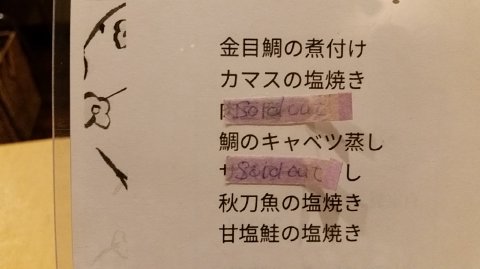 金目鯛の煮付け
カマスの塩焼き
Sord out
鯛のキャベツ蒸し
Sord out し
秋刀魚の塩焼き
甘塩鮭の塩焼き